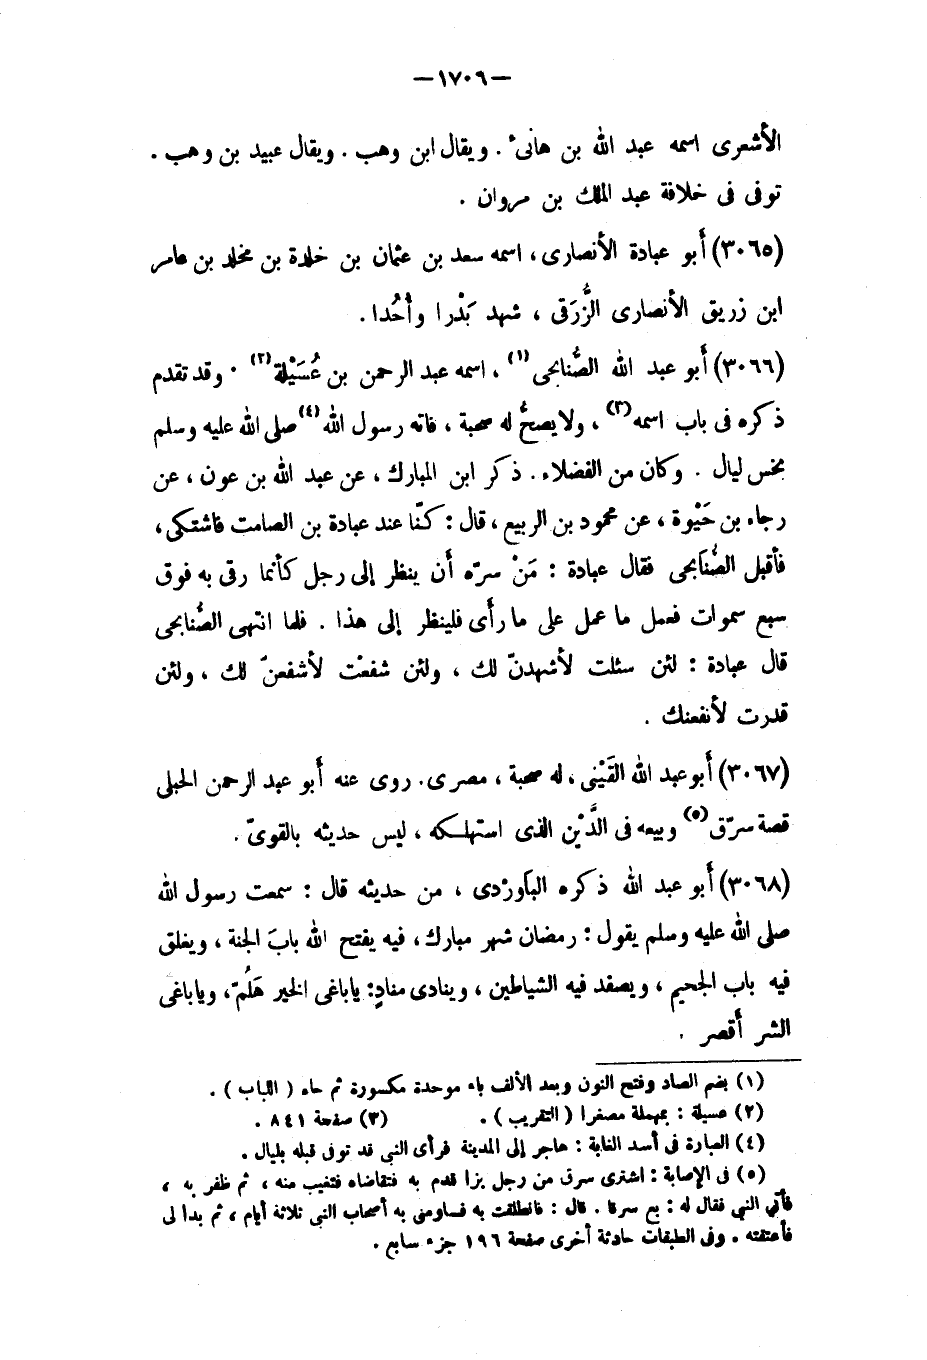 —١٧٠٦—
الأشعرى اسمه عبد الله بن هانىء . ويقال ابن وهب . ويقال عبيد بن وهب .
توفى فى خلافة عبد الملك بن مروان .
(٣٠٦٥) أبو عبادة الأنصارى، اسمه سعد بن عثمان بن خلدة بن مخلد بن عامر
ابن زريق الأنصارى الزُّرَقى ، شهد بَدْرا وأُحُدا .
(٣٠٦٦) أبو عبد الله الصُّنابحى (١) ، اسمه عبد الرحمن بن عُسَيْلة (٢) . وقد تقدم
ذكره فى باب اسمه (٣) ، ولا يصحُّ له صحبة ، فاته رسول الله (٤) صلى الله عليه وسلم
بخمس ليال . وكان من الفضلاء . ذكر ابن المبارك ، عن عبد الله بن عون ، عن
رجاء بن حَيْوة ، عن محمود بن الربيع ، قال : كنّا عند عبادة بن الصامت فاشتكى ،
فأقبل الصُّنَابحى فقال عبادة : مَنْ سرّه أن ينظر إلى رجل كأنما رقى به فوق
سبع سموات فعمل ما عمل على ما رأى فلينظر إلى هذا . فلما انتهى الصُّنابحى
قال عبادة : لئن سئلت لأشهدنّ لك ، ولئن شفعْت لأشفعنّ لك ، ولئن
قدرت لأنفعنك .
(٣٠٦٧) أبو عبد الله القَيْنى ، له صحبة ، مصرى . روى عنه أبو عبد الرحمن الحبلى
قصة سرّق (٥) وبيعه فى الدَّيْن الذى استهلكه ، ليس حديثه بالقوىّ .
(٣٠٦٨) أبو عبد الله ذكره البَاوَرْدى ، من حديثه قال : سمعت رسول الله
صلى الله عليه وسلم يقول : رمضان شهر مبارك ، فيه يفتح الله بابَ الجنة ، ويغلق
فيه باب الجحيم ، ويصفد فيه الشياطين ، وينادى منادٍ: ياباغى الخير هَلُمّ ، وياباغى
الشر أقصر .
(١) بضم الصاد وفتح النون وبعد الألف باء موحدة مكسورة ثم حاء ( اللباب ) .
(٢) عسيلة : بمهملة مصغرا ( التقريب ) . (٣) صفحة ٨٤١ .
(٤) العبارة فى أسد الغابة : هاجر إلى المدينة فرأى النبى قد توفى قبله بليال .
(٥) فى الإصابة : اشترى سرق من رجل بزا قدم به فتقاضاه فتغيب منه ، ثم ظفر به ،
فأتى النبى فقال له : بع سرقا . قال : فانطلقت به فساومنى به أصحاب النبى ثلاثة أيام ، ثم بدا لى
فأعتقته . وفى الطبقات حادثة أخرى صفحة ١٩٦ جزء سابع .